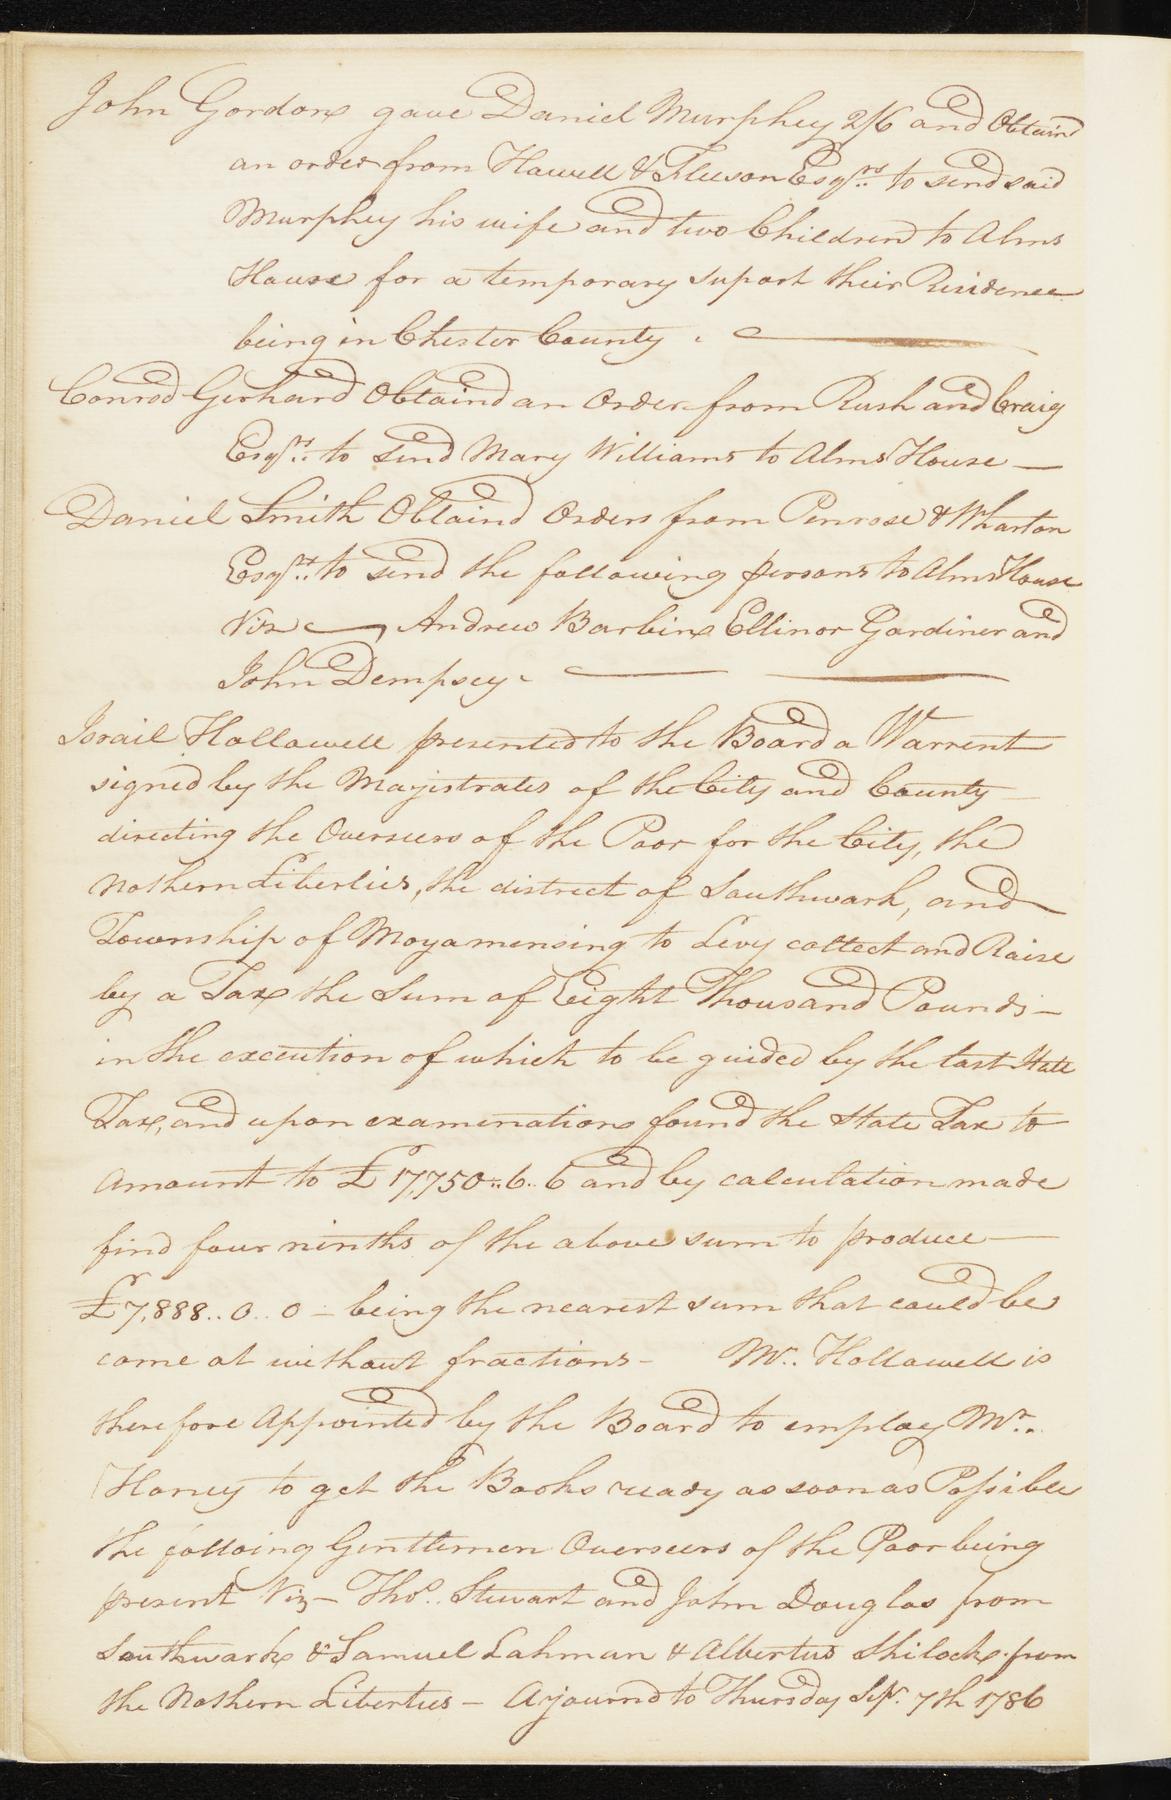 John Gordon gave Daniel Murphey 2/6 and Obtaind
an order from Howell & Tilleson Esqrs.. to send said
Murphey his wife and two Children to Alms
House for a temporary suport their Residence
being in Chester County .
Conrod Gerhard Obtaind an Order from Rush and Craig
Esqrs.. to send Mary Williams to Alms House —
Daniel Smith Obtaind Orders from Penrose & Wharton
Esqrs.. to send the following persons to Alms House
Viz — Andrew Barbin Ellinor Gardiner and
John Dempsey.
Israil Hollawell presented to the Board a Warrent
signed by the Majistrates of the City and County —
directing the Overseers of the Poor for the City, the
Nothern Liberties, the district of Southwark, and
Township of Moyamensing to Levy collect and Raise
by a Tax the Sum of Eight Thousand Pounds —
in the execution of which to be guided by the last State
Tax, and upon examination found the State Tax to
Amount to £17,750..6..6 and by calculation made
find four ninths of the above sum to produce —
£7,888..0..0 – being the nearest sum that could be
come at without fractions – Mr.. Hollawell is
therefore Appointed by the Board to employ Mr..
Haney to get the Books ready as soon as Possible
the folloing Gentlemen Overseers of the Poor being
present Viz – Thos. Stewart and John Douglas from
Southwark & Samuel Lahman & Albertus Shilock from
the Nothern Liberties – Ajournd to Thursday Sepr. 7th 1786